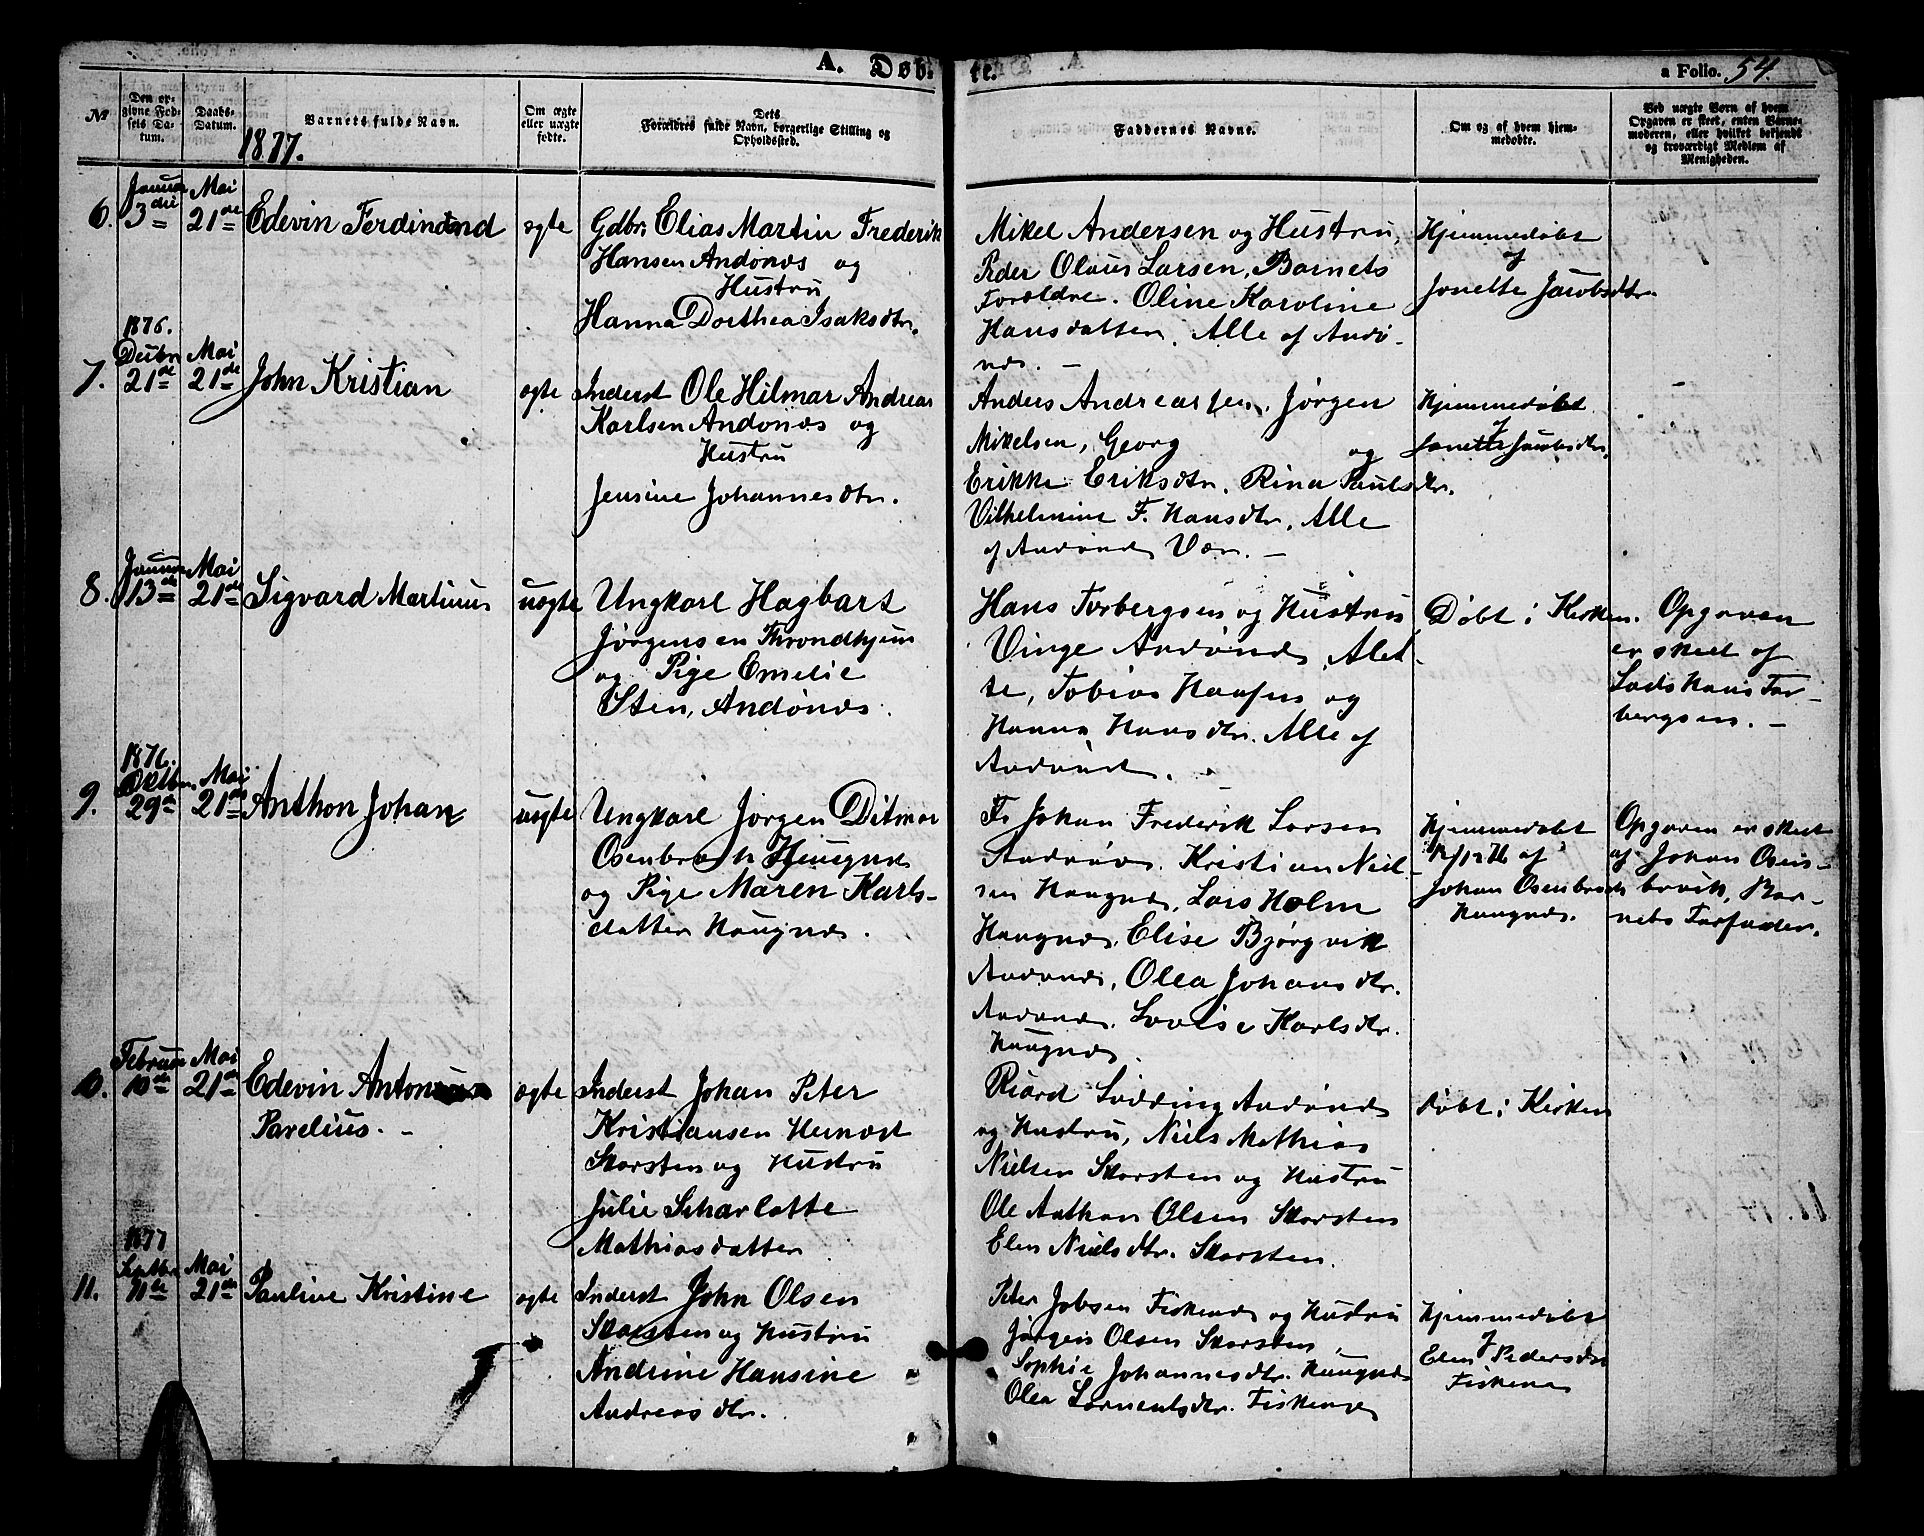 A. Døb-
te.
a Folio. 54.
№
Den opgivne Fødsels Datum.
Daabs-Datum.
Barnets fulde Navn.
Om ægte eller uægte fødte.
Dets Forældres fulde Navn, borgerlige Stilling og Opholdssted.
Faddernes Navne.
Om og af hvem hjemmedøbte.
Ved uægte Børn af hvem Opgaven er skeet, enten Barnemoderen, eller hvilket bekjendt og troværdigt Medlem af Menigheden.
1877.
6.
Januar
3die
Mai
21de
Edevin Ferdinand
ægte
Gdbr. Elias Martin Frederik
Hansen Andønæs og
Hustru
Hanna Dorthea Isaksdtr.
Mikel Andersen og Hustru,
Peder Olaus Larsen, Barnets
Forældre. Oline Karoline
Hansdatter. Alle af Andø-
næs. –
Hjemmedøbt
af
Jonette Jacobsdtr.
7.
1876.
Decbr
21de
Mai
21de
John Kristian
ægte
Inderst Ole Hilmar Andreas
Karlsen Andønæs og
Hustru
Jensine Johannesdtr.
Anders Andreassen, Jørgen
Mikelsen, Georg og
Erikke Eriksdtr. Rina Paulsdtr.
Vilhelmine F. Hansdtr. Alle
af Andønæs Vær. –
Hjemmedøbt
af
Jonette Jacobsdtr.
8.
Januar
13de
Mai
21de
Sigvard Martinus
uægte
Ungkarl Hagbart
Jørgensen Throndhjem
og Pige Emelie
Sten, Andønæs.
Hans Torbergsen og Hustru
Vinge Andønæs, Alet-
te, Tobias Hansen og
Hanna Hansdtr. Alle af
Andønæs.
Døbt i Kirken.
Opgaven
er skeet af
Lods Hans Tor-
bergsen. –
9.
1876.
Oktbr.
29de
Mai
21de
Anthon Johan
uægte
Ungkarl Jørgen Ditmar
Osenbroch Haugnæs
og Pige Maren Karls-
datter Haugnæs.
Fr Johan Frederik Larsen
Andønæs. Kristian Niel-
sen Haugnæs, Lars Holm
Haugnæs, Elise Bjørgvik
Andønæs, Olea Johansdtr.
Andønæs. Lovise Karlsdtr.
Haugnæs.
Hjemmedøbt
12/12 76 af
Johan Osenbroch
Haugnæs.
Opgaven er skeet
af Johan Osen-
broch, Bar-
nets Farfader.
10.
Februar
10de
Mai
21de
Edevin Antonius
Parelius. –
ægte
Inderst Johan Peter
Kristiansen Hernæst
Skorsten og Hustru
Julie Scharlotte
Mathiasdatter
Riard Lodding Andønæs
og Hustru, Niels Mathias
Nielsen Skorsten og Hustru
Ole Anthon Olsen Skorsten
Elen Nielsdtr. Skorsten.
Døbt i Kirken
11.
1877
Septbr
11te
Mai
21de
Pauline Kristine
ægte
Inderst John Olsen
Skorsten og Hustru
Andrine Hansine
Andreasdtr.
Peter Jobsen Fiskenæs og Hustru
Jørgen Olsen Skorsten,
Sophie Johannesdtr. Haugnæs
Olea Lorentsdtr. Fiskenæs
Hjemmedøbt
af
Elen Pedersdtr
Fiskenæs